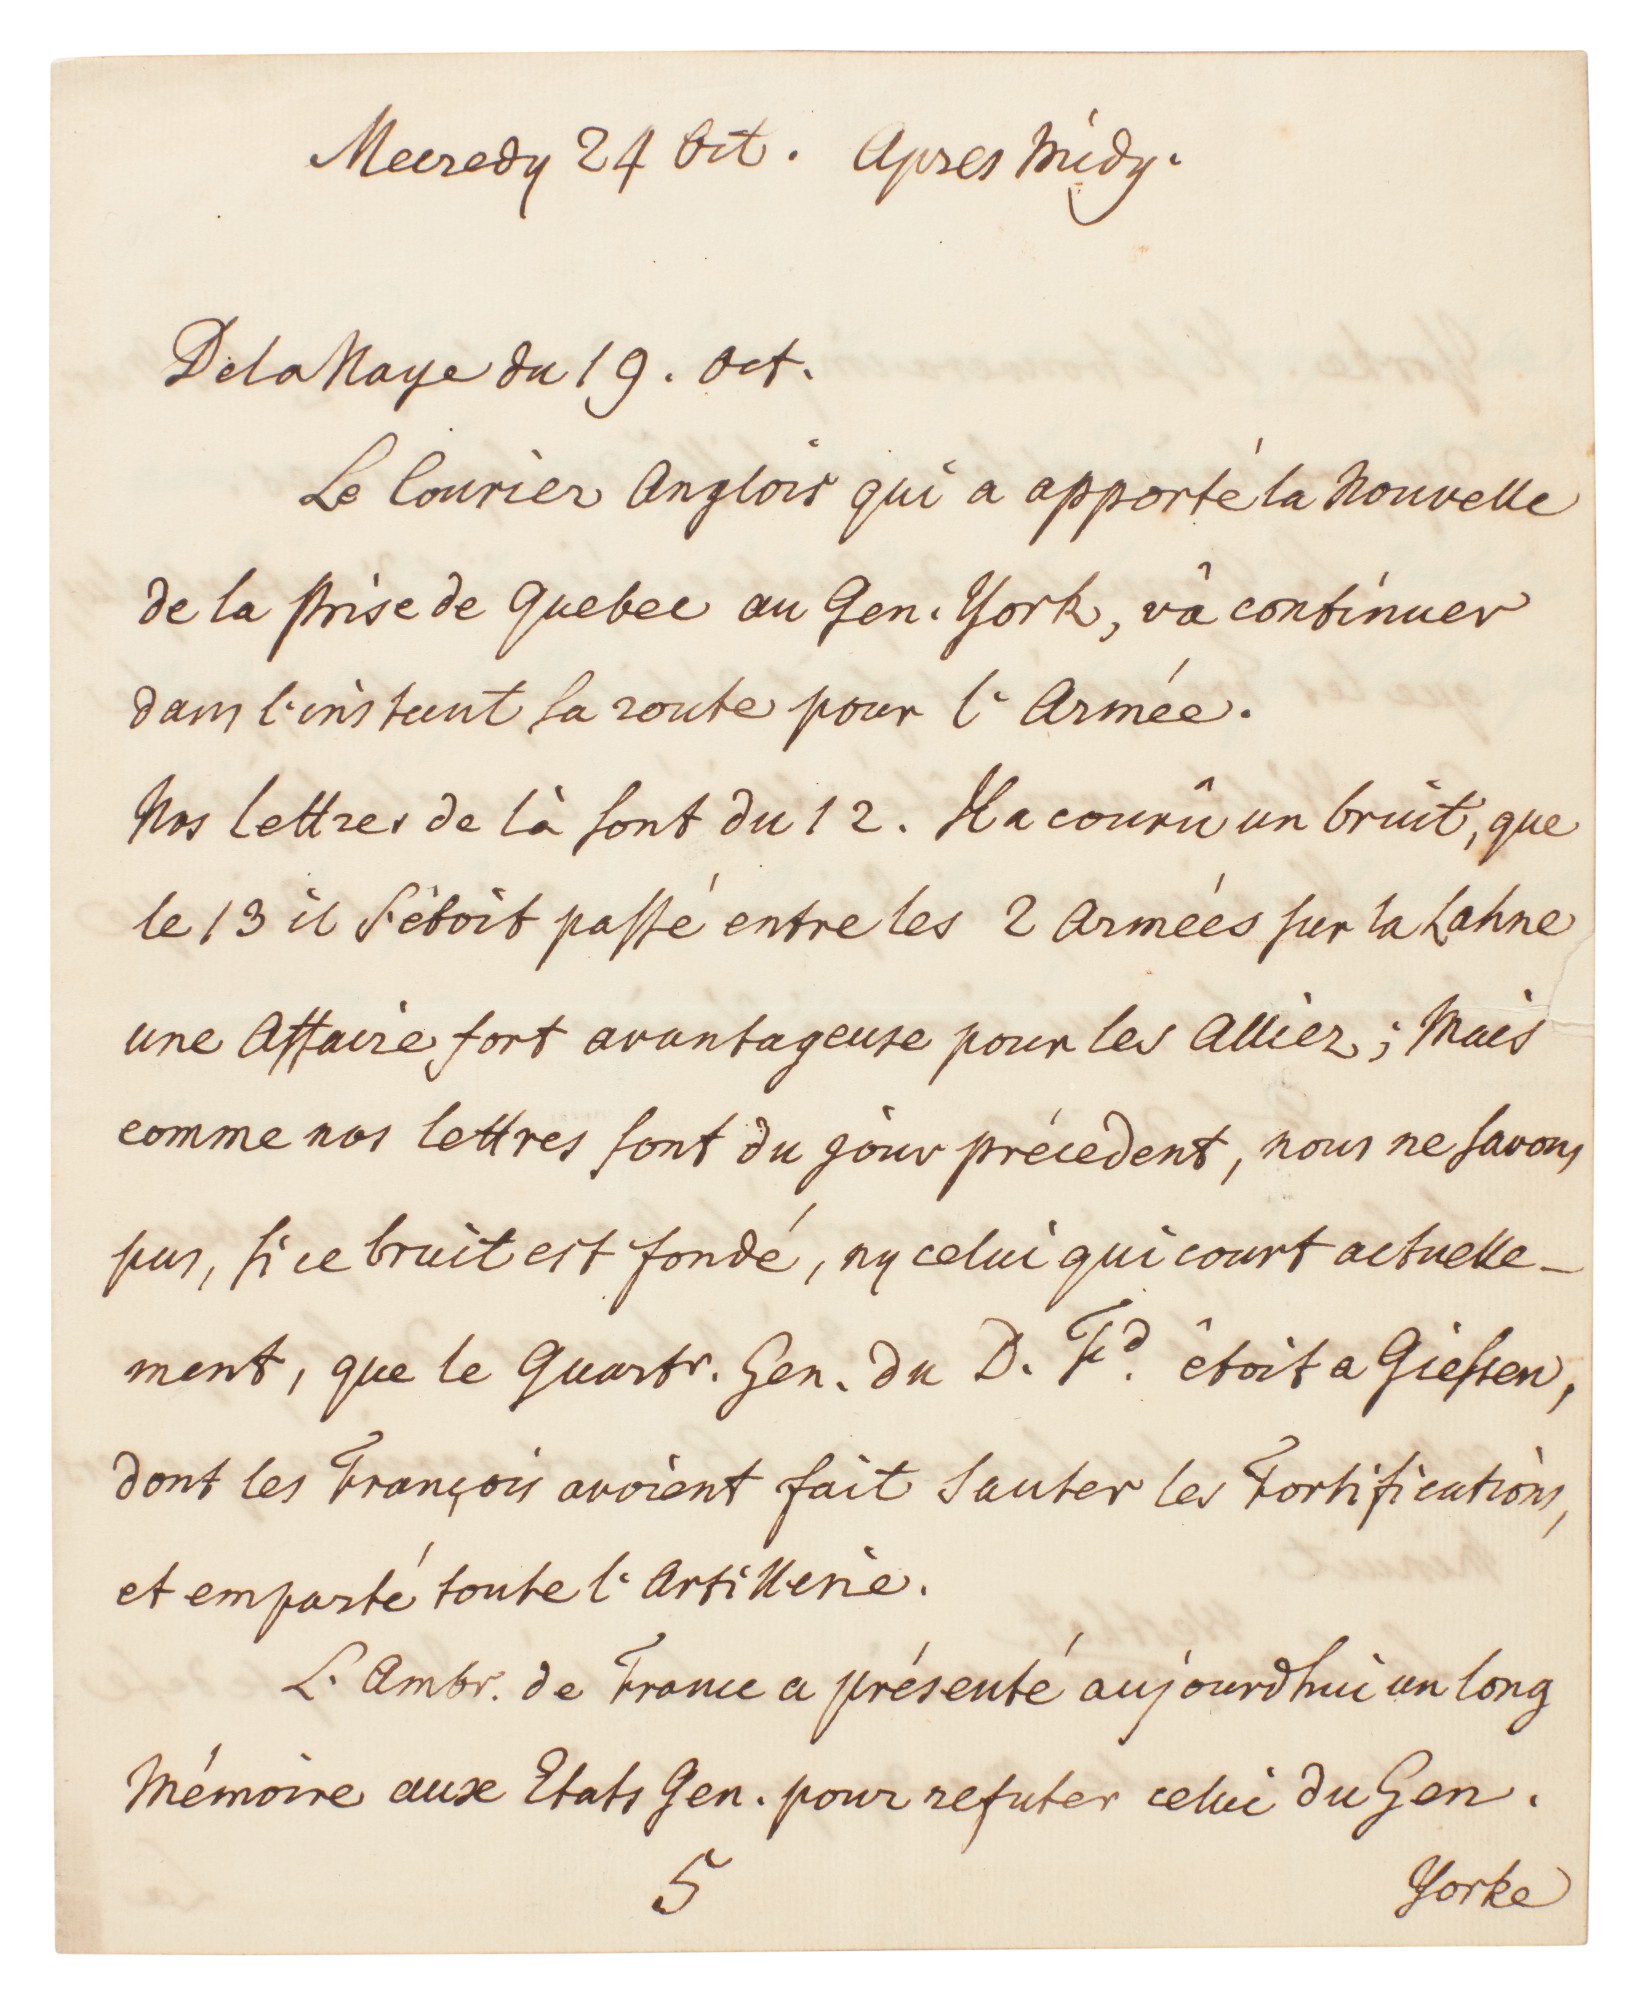 Mecredy 24 Oct. Apres Midy.
De la Haye du 19. Oct.
Le Courier Anglois qui a apporté la Nouvelle
de la Prise de Quebec au Gen. York, vâ continuer
dans l'instant sa route pour l'Armée.
Nos lettres de là sont du 12. Il a courû un bruit, que
le 13 il s'étoit passé entre les 2 Armées sur la Lahne
une Affaire fort avantageuse pour les Alliez; Mais
comme nos lettres sont du jour précedent, nous ne savons
pas, si ce bruit est fondé, ny celui qui court actuelle-
ment, que le Quartr. Gen. du D. Fd. êtoit a Giessen,
dont les François avoient fait sauter les Fortifications,
et emporté toute l'Artillerie.
L'Ambr. de France a présenté aujourdhui un long
Mémoire aux Etats Gen. pour refuter celui du Gen.
5 Yorke